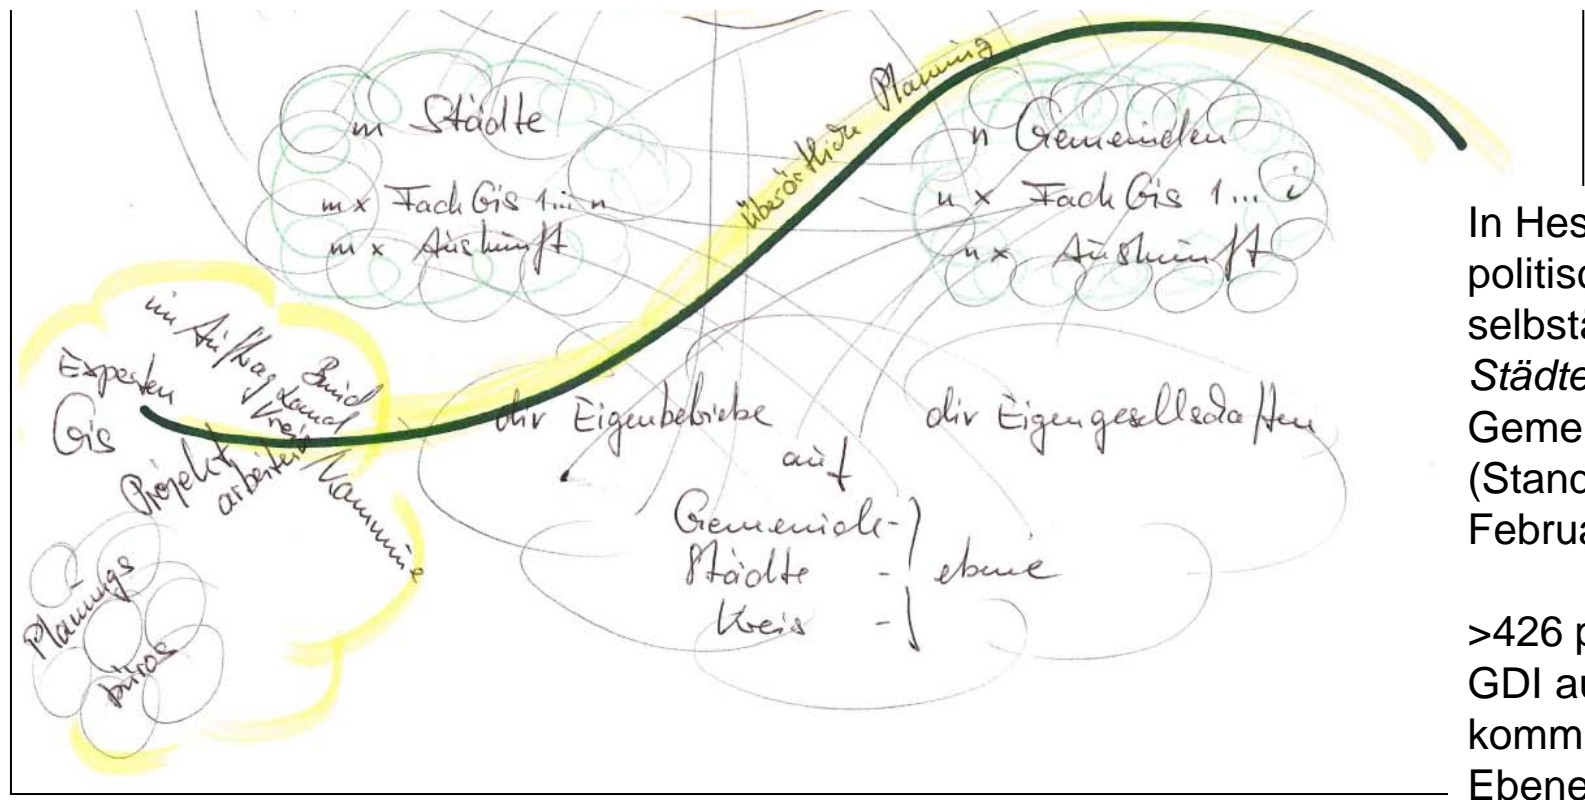 m Städte
m x Fach Gis 1... n
m x Auskunft
überörtliche Planung
n Gemeinden
n x Fach Gis 1... i
n x Auskunft
Experten
Gis
im Auftrag
Bund
Land
Kreis
Kommune
Projekt
arbeiten
Planungs
büros
div Eigenbetriebe
div Eigengesellschaften
auf
Gemeinde-
Städte -
Kreis -
ebene
In Hes
politisc
selbstä
Städte
Geme
(Stand
Februa
>426 p
GDI au
komm
Ebene